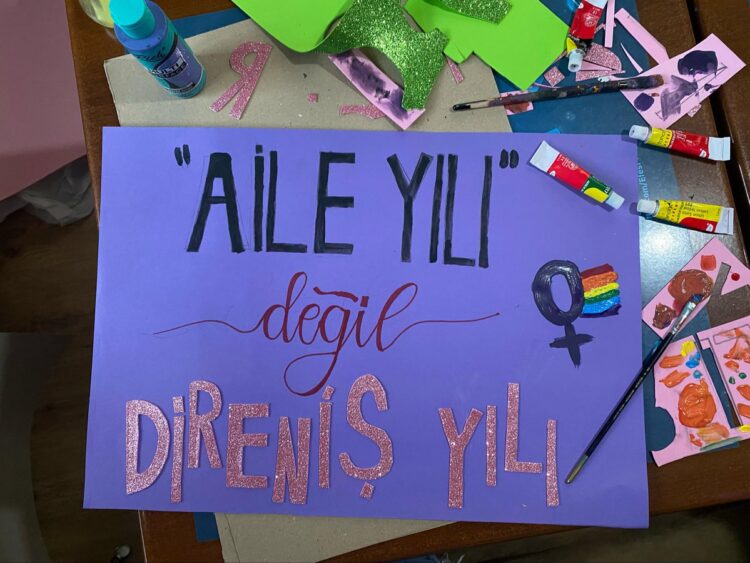 "AİLE YILI"
değil
DİRENİŞ YILI